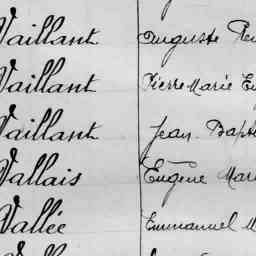 Vaillant Auguste
Vaillant Pierre Marie
Vaillant Jean Bapt
Vallais Eugène Mar
Vallée Emmanuel M